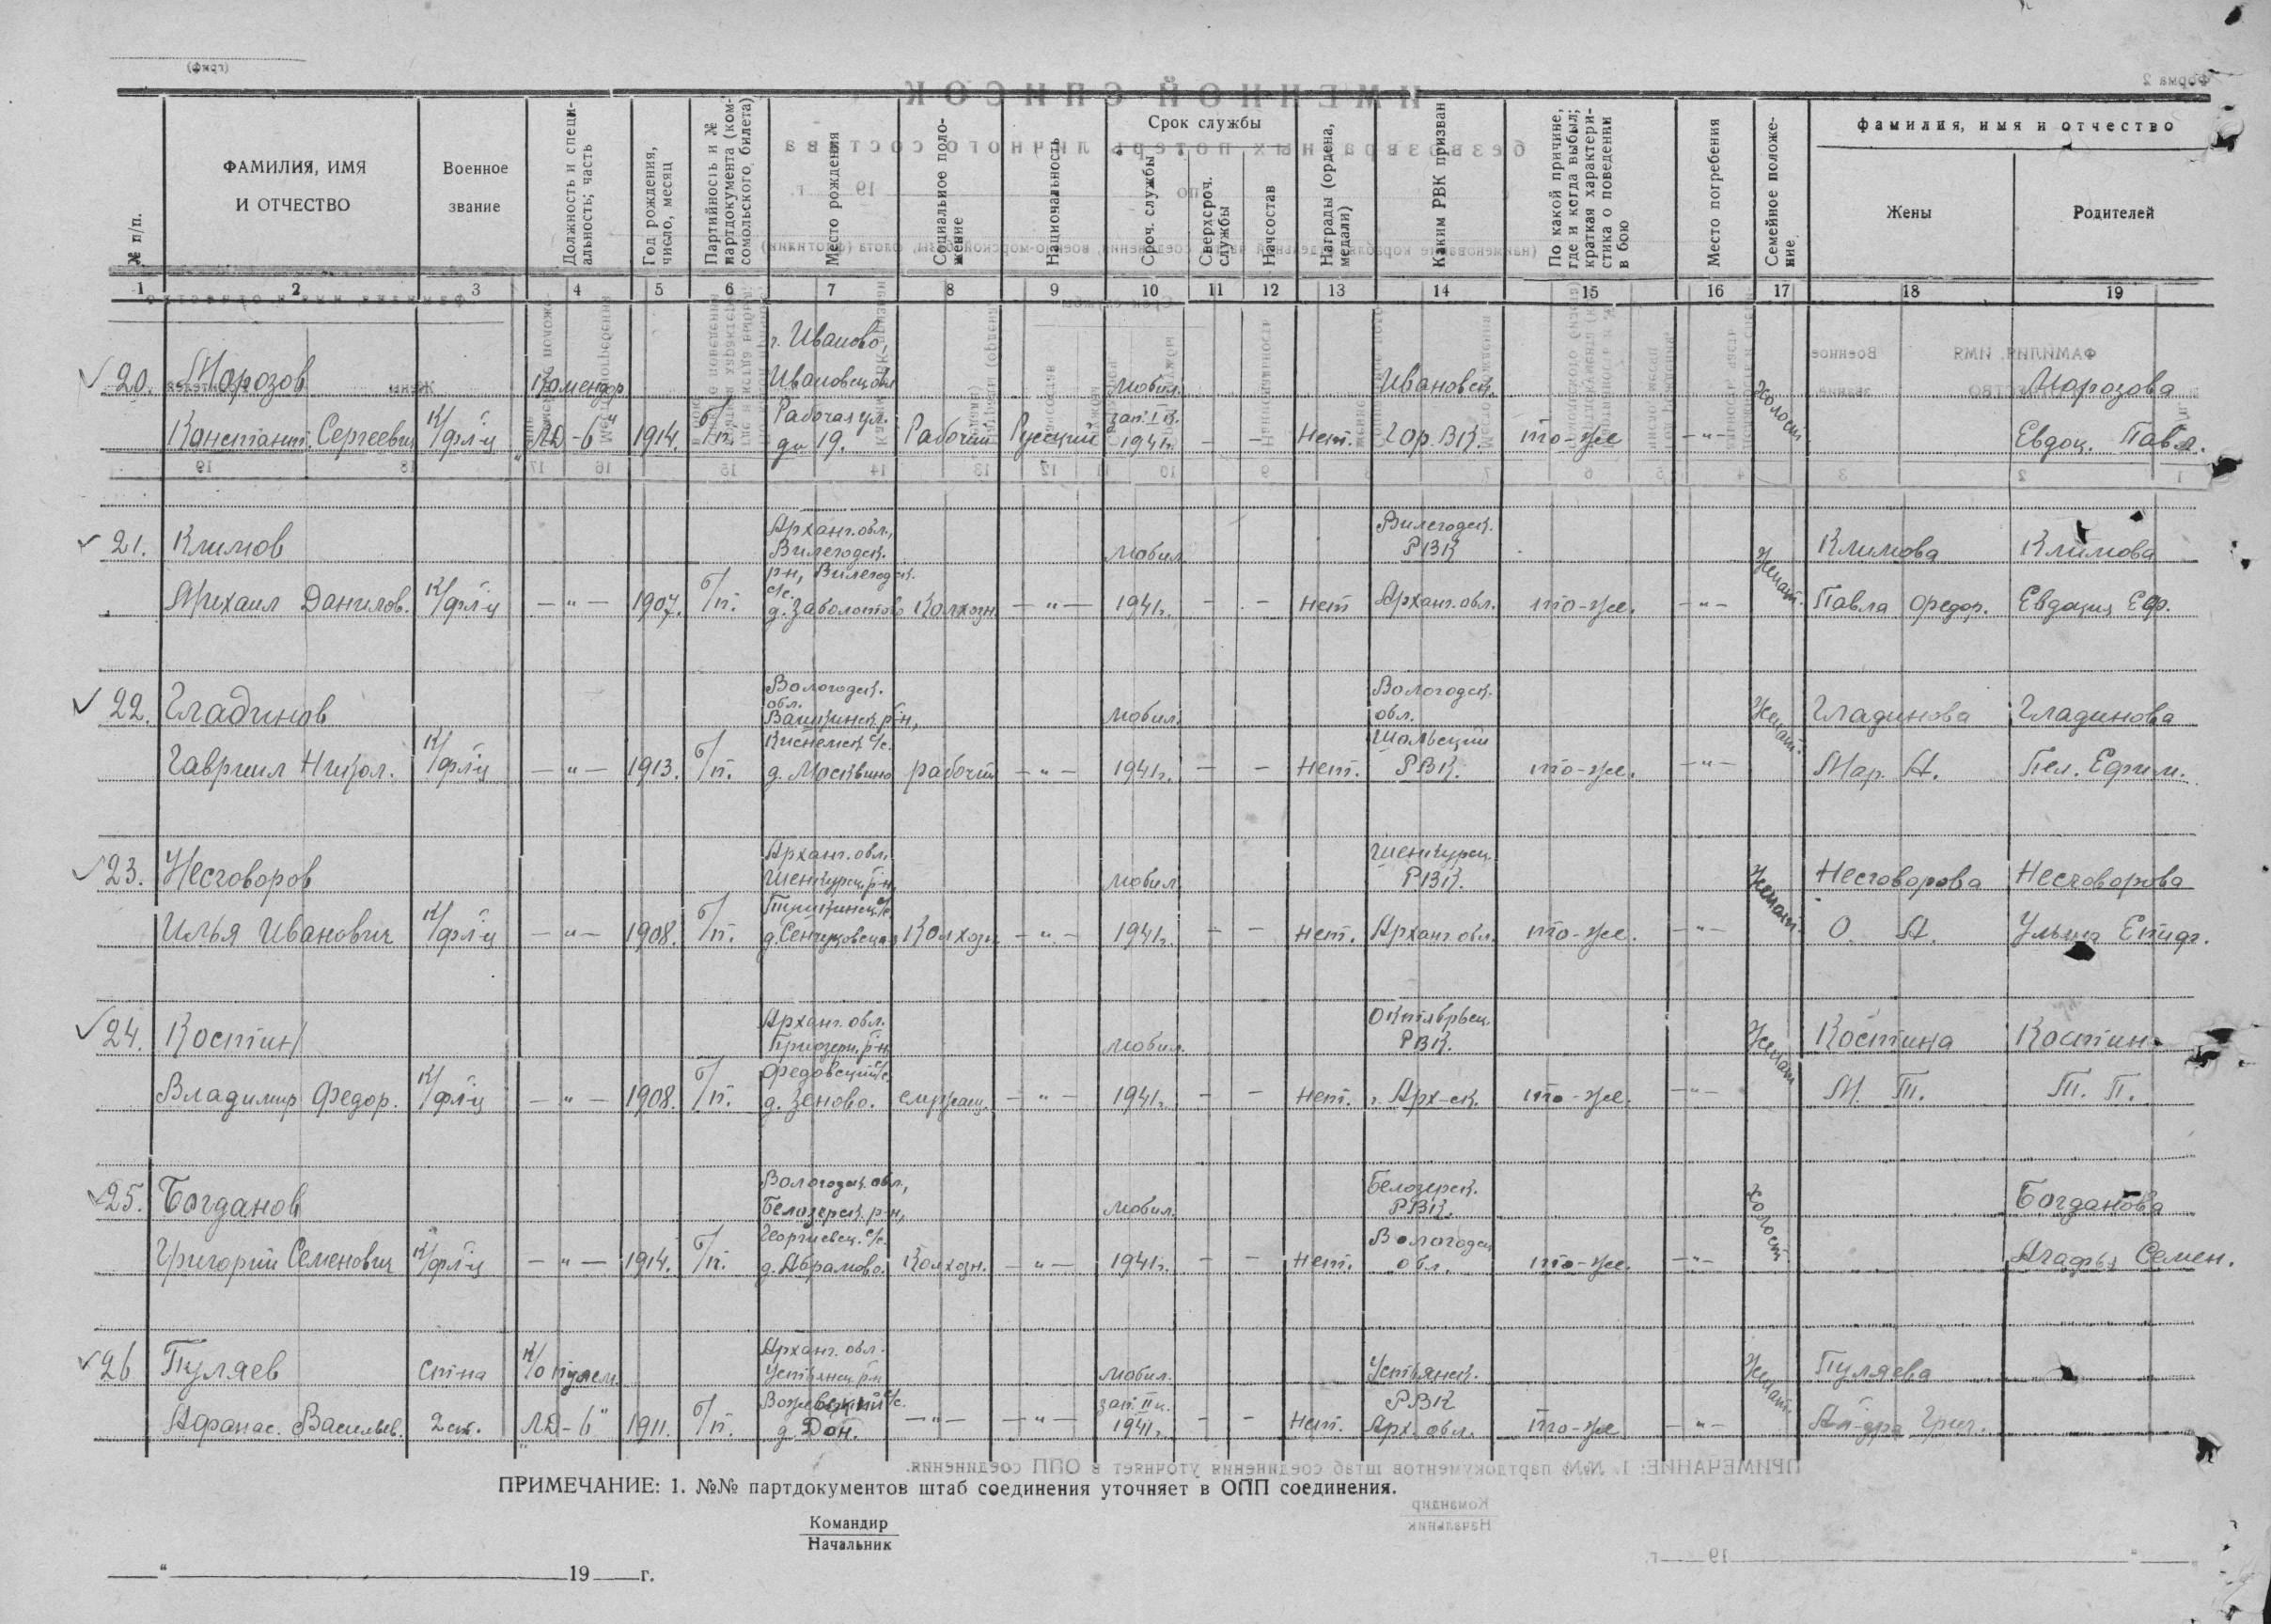 № п/п.
ФАМИЛИЯ, ИМЯ
И ОТЧЕСТВО
Военное
звание
Должность и специ-
альность; часть
Год рождения,
число, месяц
Партийность и №
партдокумента (ком-
сомольского билета)
Место рождения
Социальное поло-
жение
Национальность
Срок службы
Сроч. службы
Сверхсроч.
службы
Начсостав
Награды (ордена,
медали)
Каким РВК призван
По какой причине,
где и когда выбыл;
краткая характери-
стика о поведении
в бою
Место погребения
Семейное положе-
ние
фамилия, имя и отчество
Жены
Родителей
1 2 3 4 5 6 7 8 9 10 11 12 13 14 15 16 17 18 19
г. Иваново,
20. Морозов Комендор Ивановск. обл. мобил. Ивановск. Холост. Морозова
Рабочая ул. зап. I к.
Констант. Сергеевич к/фл-ц ЛД-6" 1914. б/п. д. 19. Рабочий Русский 1941г. - - Нет. Гор. ВК. то-же -"- Евдок. Павл.
Арханг. обл., Вилегодск.
21. Климов Вилегодск. мобил. РВК Женат. Климова Климова
р-н, Вилегодск.
с/с.
Михаил Данилов. к/фл-ц -"- 1907. б/п. д. Заболотье Колхозн. -"- 1941г. - - нет Арханг. обл. то-же. -"- Павла Федор. Евдокия Еф.
Вологодск. Вологодск.
обл.
22. Гладинов Вашкинск. р-н, мобил. обл. Женат. Гладинова Гладинова
Киснемск. с/с. Шольский
Гавриил Никол. к/фл-ц -"- 1913. б/п. д. Москвино рабочий -"- 1941г. - - Нет. РВК. то-же. -"- Мар. А. Пел. Ефим.
Арханг. обл. Шенкурск.
23. Несговоров Шенкурск. р-н, мобил. РВК. Женат. Несговорова Несговорова
Илья Иванович к/фл-ц -"- 1908. б/п. Колхозн. -"- 1941г. - - нет. Арханг. обл. то-же. -"- О. А.
Арханг. обл. Октябрьск.
24. Костин Приозерн. р-н мобил. РВК. Женат Костина Костина
Федовский с/с.
Владимир Федор. к/фл-ц -"- 1908. б/п. д. Зеново. служащ. -"- 1941г. - - нет. г. Арх-ск. то-же. -"- М. Т. Т. П.
Вологодск. обл., Белозерск.
25. Богданов Белозерск. р-н, мобил. РВК. Холост. Богданова
Георгиевск. с/с. Вологодск
Григорий Семенович к/фл-ц -"- 1914. б/п. д. Абрамово. Колхозн. -"- 1941г. - - Нет. обл. то-же. -"- Агафья Семен.
Арханг. обл.
26 Пуляев Ст-на к/о пулем. Устьянск. р-н мобил. Устьянск. Женат. Пуляева
с/с. зап. II к. РВК
Афанас. Васильев. 2 ст. ЛД-6" 1911. б/п. д. Дон. -"- -"- 1941г. - - Нет. Арх. обл. то-же -"- Ал-дра Григ.
ПРИМЕЧАНИЕ: 1. №№ партдокументов штаб соединения уточняет в ОПП соединения.
Командир
Начальник
" 19 г.